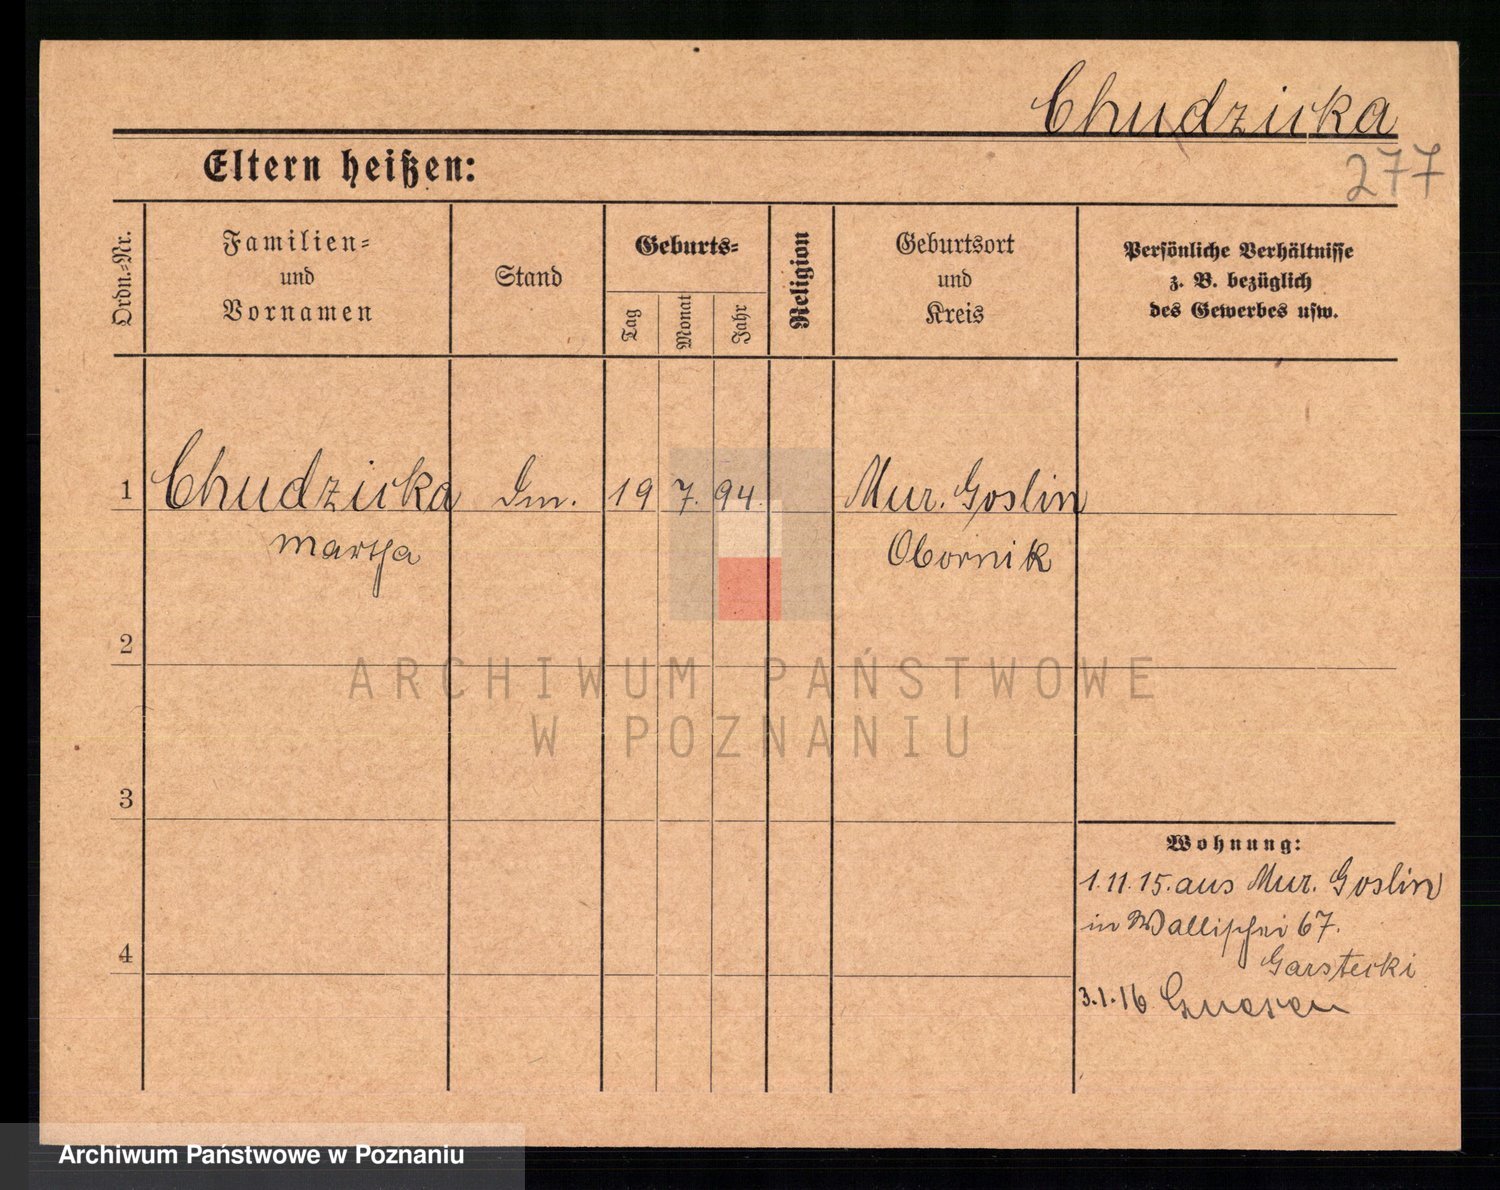 Chudzicka
277
Eltern heißen:
Ordn.-Nr.
Familien-
und
Vornamen
Stand
Geburts-
Tag
Monat
Jahr
Religion
Geburtsort
und
Kreis
Persönliche Verhältnisse
z. B. bezüglich
des Gewerbes usw.
1 Chudzicka 19 7. 94. Mur. Goslin
Martha Obornik
2
ARCHIWUM PAŃSTWOWE
W POZNANIU
3
Wohnung:
1.11.15. aus Mur. Goslin
in Wallischei 67.
4
Garstecki
3.1.16 Gnesen
Archiwum Państwowe w Poznaniu